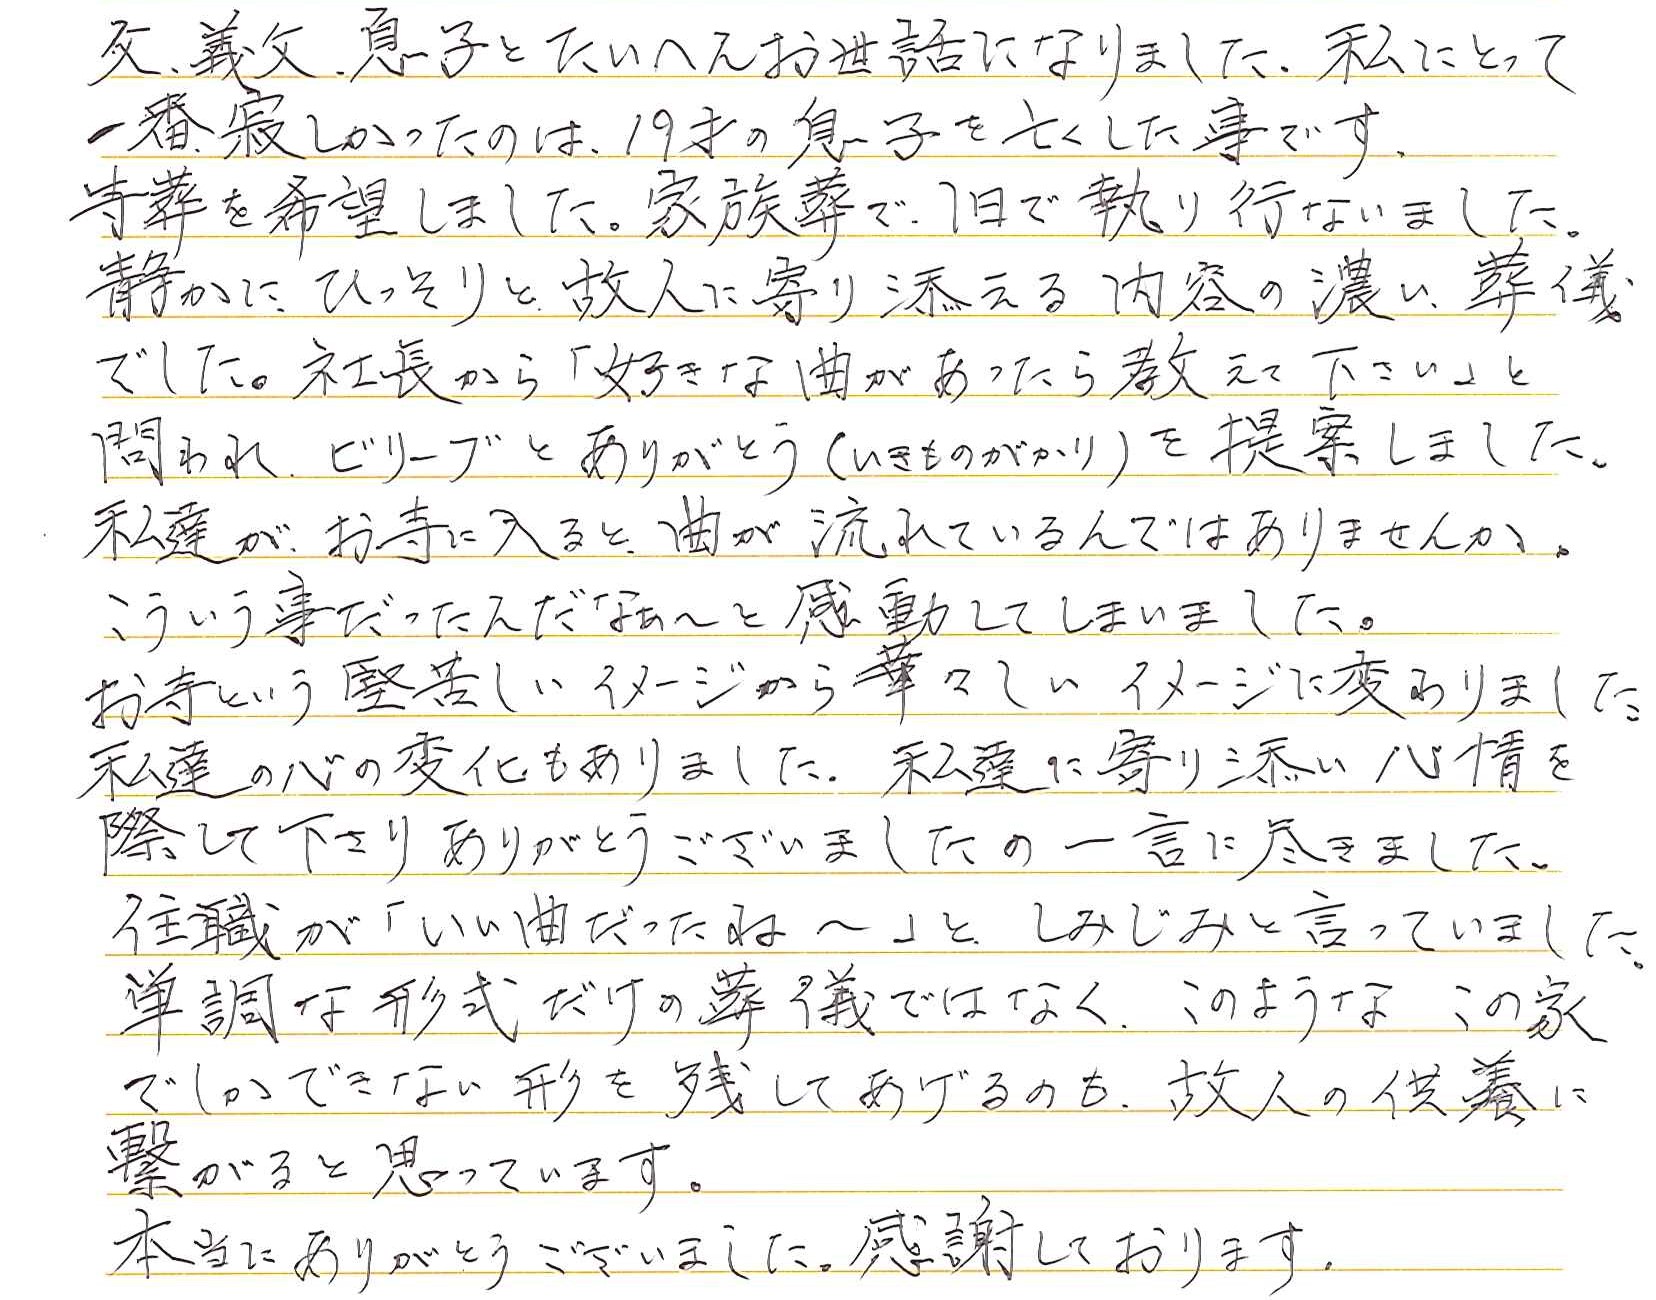 父、義父、息子とたいへんお世話になりました、私にとって
一番、寂しかったのは、19才の息子を亡くした事です、
寺葬を希望しました。家族葬で、1日で執り行ないました。
静かに、ひっそりと、故人に寄り添える内容の濃い、葬儀
でした。社長から「好きな曲があったら教えて下さい」と
問われ、ビリーブとありがとう(いきものがかり)を提案しました。
私達が、お寺に入ると、曲が流れているんではありませんか。
こういう事だったんだなぁ〜と感動してしまいました。
お寺という堅苦しいイメージから華々しいイメージに変わりました
私達の心の変化もありました、私達に寄り添い心情を
際して下さりありがとうございましたの一言に尽きました。
住職が「いい曲だったね〜」と、しみじみと言っていました。
単調な形式だけの葬儀ではなく、このような この家
でしかできない形を残してあげるのも、故人の供養に
繋がると思っています。
本当にありがとうございました。感謝しております、